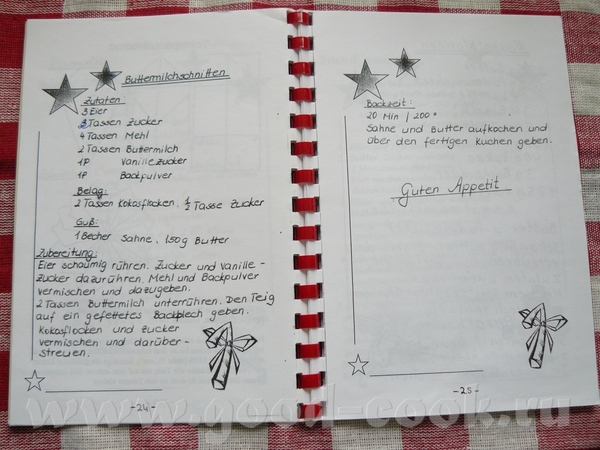 Buttermilchschnitten
Zutaten:
3 Eier
2 Tassen Zucker
4 Tassen Mehl
2 Tassen Buttermilch
1P Vanillezucker
1P Backpulver
Belag:
2 Tassen Kokosflocken, 1/2 Tasse Zucker
Guß:
1 Becher Sahne, 150g Butter
Zubereitung:
Eier schaumig rühren. Zucker und Vanille-
zucker dazurühren. Mehl und Backpulver
vermischen und dazugeben.
2 Tassen Buttermilch unterrühren. Den Teig
auf ein gefettetes Backblech geben.
Kokosflocken und Zucker
vermischen und darüber-
streuen.
-24-
Backzeit:
20 Min / 200°
Sahne und Butter aufkochen und
über den fertigen Kuchen geben.
Guten Appetit
-25-
www.good-cook.ru